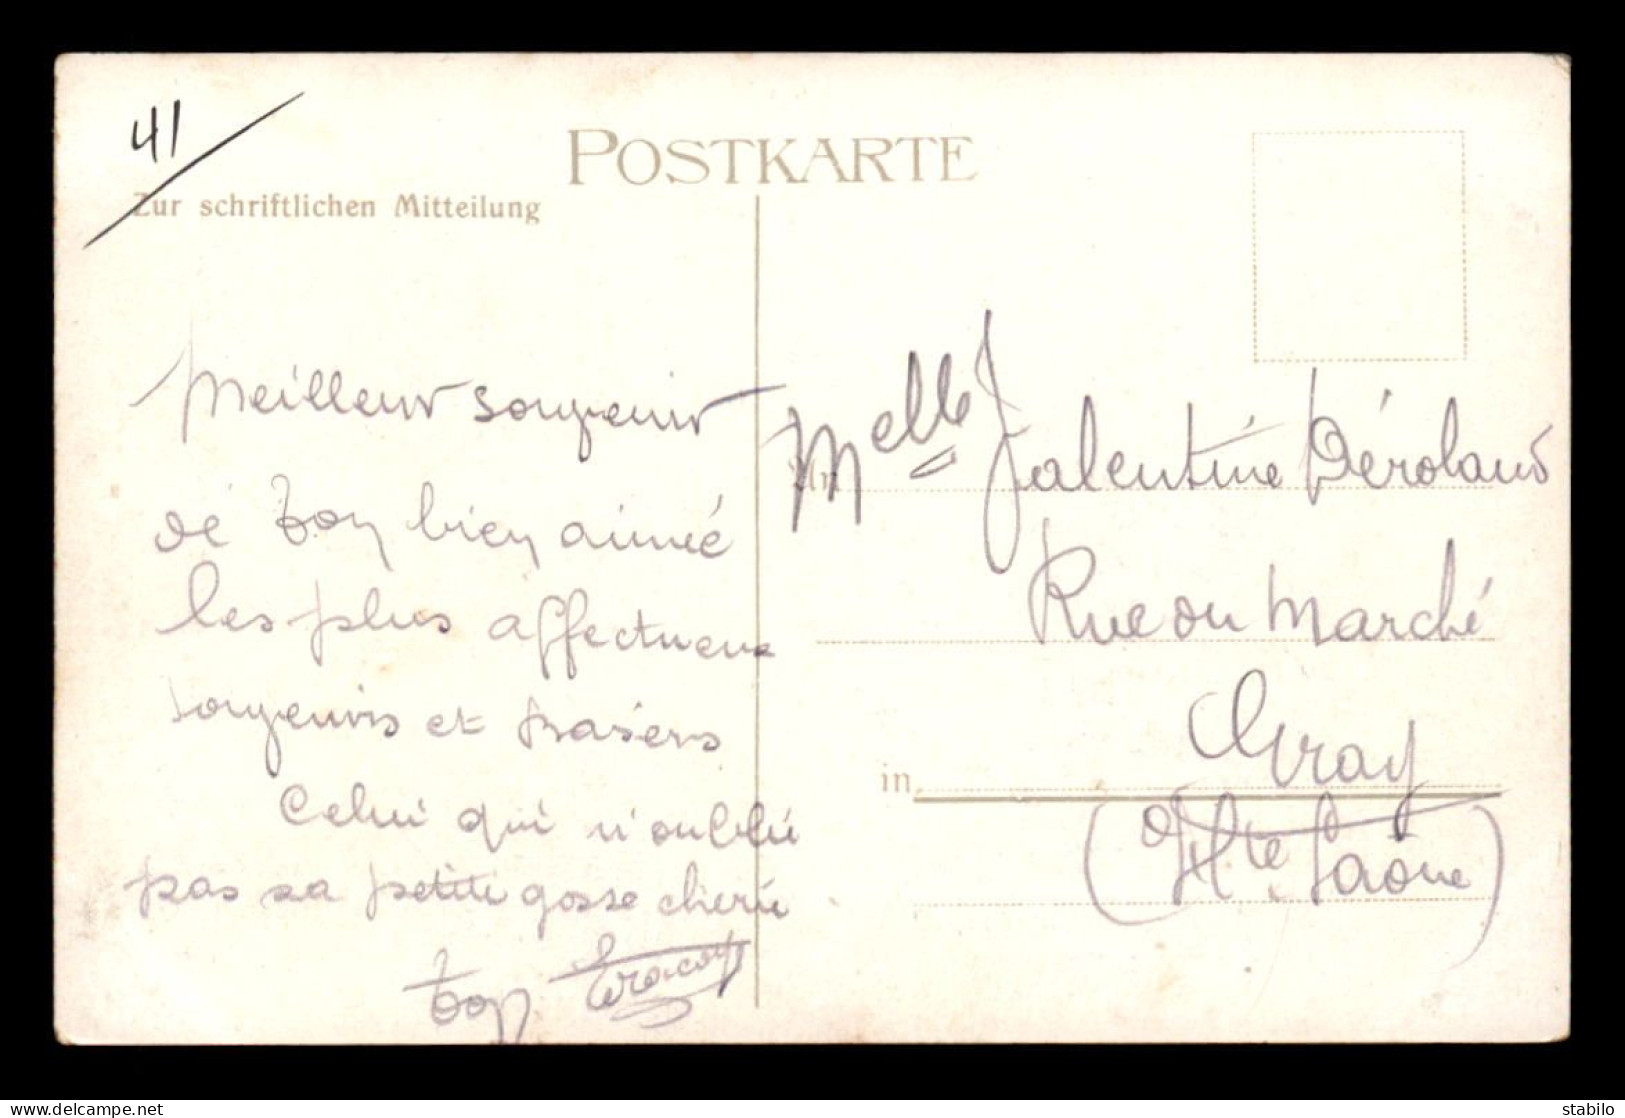 41
POSTKARTE
Zur schriftlichen Mitteilung
Meilleur souvenir
de ton bien aimé
les plus affectueux
souvenirs et baisers
Celui qui n'oublie
pas sa petite gosse cherie
ton
An Melle Valentine Déroland
Rue du Marché
in Gray
(Hte Saône)
www.delcampe.net
stabilo